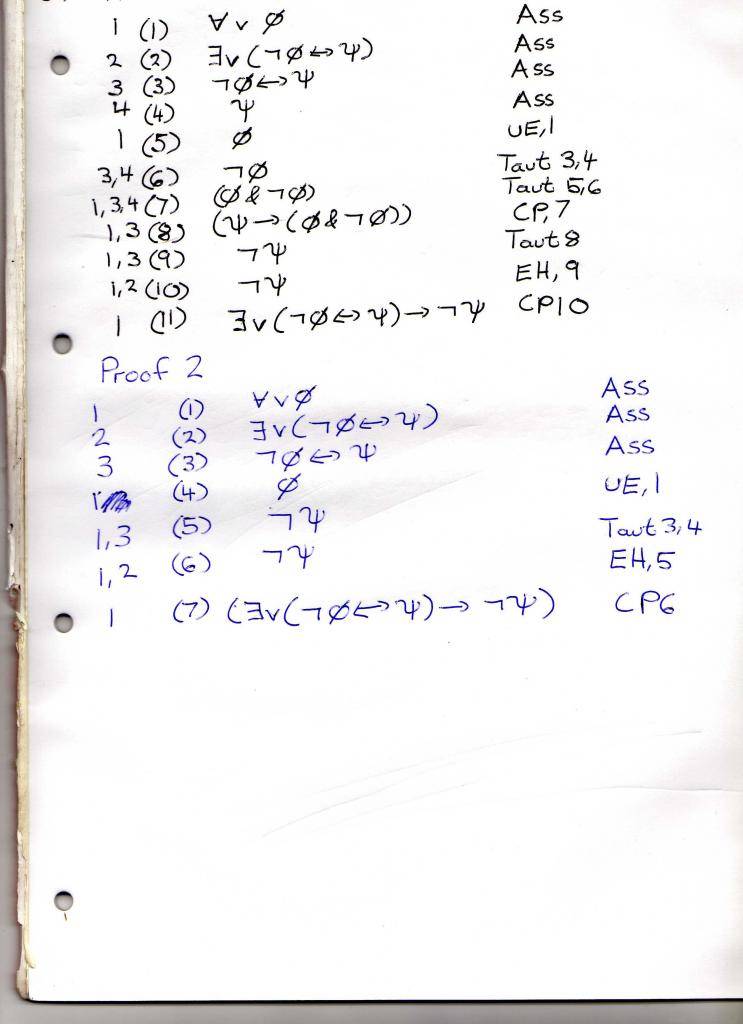 1 (1) ∀v∅ Ass
2 (2) ∃v(¬∅↔Ψ) Ass
3 (3) ¬∅↔Ψ Ass
4 (4) Ψ Ass
1 (5) ∅ UE,1
3,4 (6) ¬∅ Taut 3,4
1,3,4 (7) (∅&¬∅) Taut 5,6
1,3 (8) (Ψ→(∅&¬∅)) CP,7
1,3 (9) ¬Ψ Taut 8
1,2 (10) ¬Ψ EH,9
1 (11) ∃v(¬∅↔Ψ)→¬Ψ CP10
Proof 2
1 (1) ∀v∅ Ass
2 (2) ∃v(¬∅↔Ψ) Ass
3 (3) ¬∅↔Ψ Ass
1 (4) ∅ UE,1
1,3 (5) ¬Ψ Taut 3,4
1,2 (6) ¬Ψ EH,5
1 (7) (∃v(¬∅↔Ψ)→¬Ψ) CP6